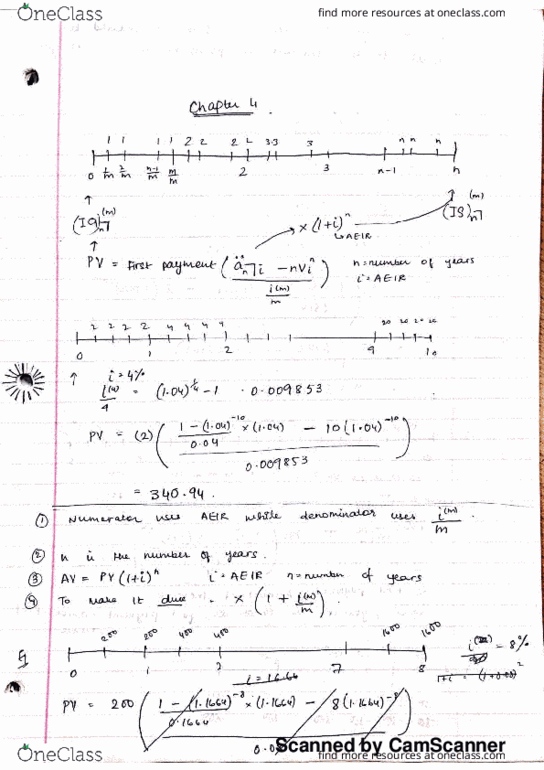 OneClass
find more resources at oneclass.com
Chapter 4.
1 1 1 1 2 2 2 2 3 3 3 n n n
0 1/m 2/m m-1/m m/m 2 3 n-1 n
(Ia)n⌉(m) (IS)n⌉(m)
×(1+i)^n
↳AEIR
PV = First payment ( än⌉i - nvi^n / i(m)/m ) n=number of years
i=AEIR
2 2 2 2 4 4 4 4 20 20 20 20
0 1 2 9 10
i = 4%
i(4)/4 = (1.04)^1/4 - 1 . 0.009853
PV = (2) ( 1-(1.04)^-10/0.04 × (1.04) - 10(1.04)^-10 / 0.009853 )
= 340.94.
① Numerator uses AEIR while denominator uses i(m)/m
② n is the number of years.
③ AV = PV(1+i)^n i=AEIR n=number of years
④ To make it due = × (1 + i(m)/m).
200 200 400 400 1600 1600
0 1 2 7 8
= 8%
1+i = (1+0.08)^2
i = 16.64
PV = 200 ( 1-(1.1664)^-8/0.1664 × (1.1664) - 8(1.1664)^-8 / 0.08 )
Scanned by CamScanner
OneClass
find more resources at oneclass.com